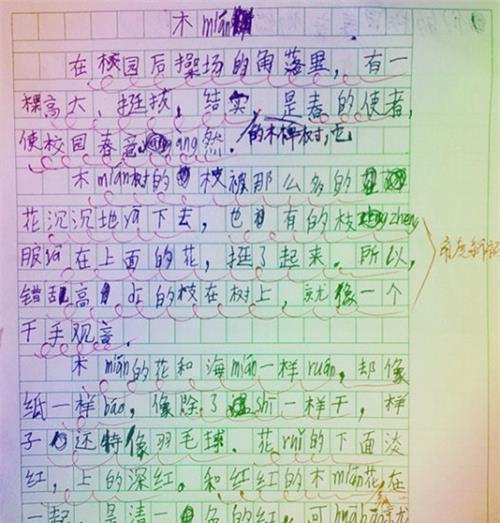 木mián
在校园后操场的角落里，有一
棵高大、挺拔，结实，是春的使者，
的木棉树，它
使校园春意àng然．
木mián树的枝被那么多的
花沉沉地yā下去，也有的枝zhēng
服yā在上面的花，挺了起来．所以，
错乱高dī的枝在树上，就像一个
千手观音．
木mián的花和海mián一样ruǎn，却像
纸一样báo，像除了shī一样干，样
子还特像羽毛球．花ruǐ的下面淡
红，上的深红．和红红的木mián花在
一起，是清一色的红，可